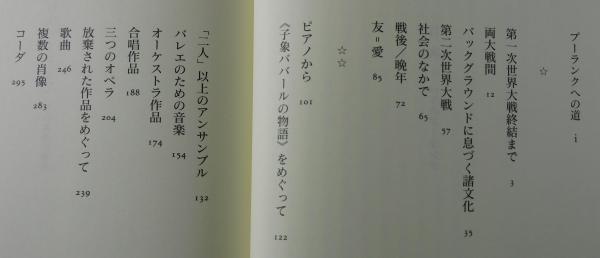 プーランクへの道 i
☆
第一次世界大戦終結まで 3
両大戦間 12
バックグラウンドに息づく諸文化 35
第二次世界大戦 57
社会のなかで 65
戦後/晩年 72
友=愛 85
☆☆
ピアノから 101
《子象ババールの物語》をめぐって 122
「二人」以上のアンサンブル 132
バレエのための音楽 154
オーケストラ作品 174
合唱作品 188
三つのオペラ 204
放棄された作品をめぐって 239
歌曲 246
複数の肖像 283
コーダ 295